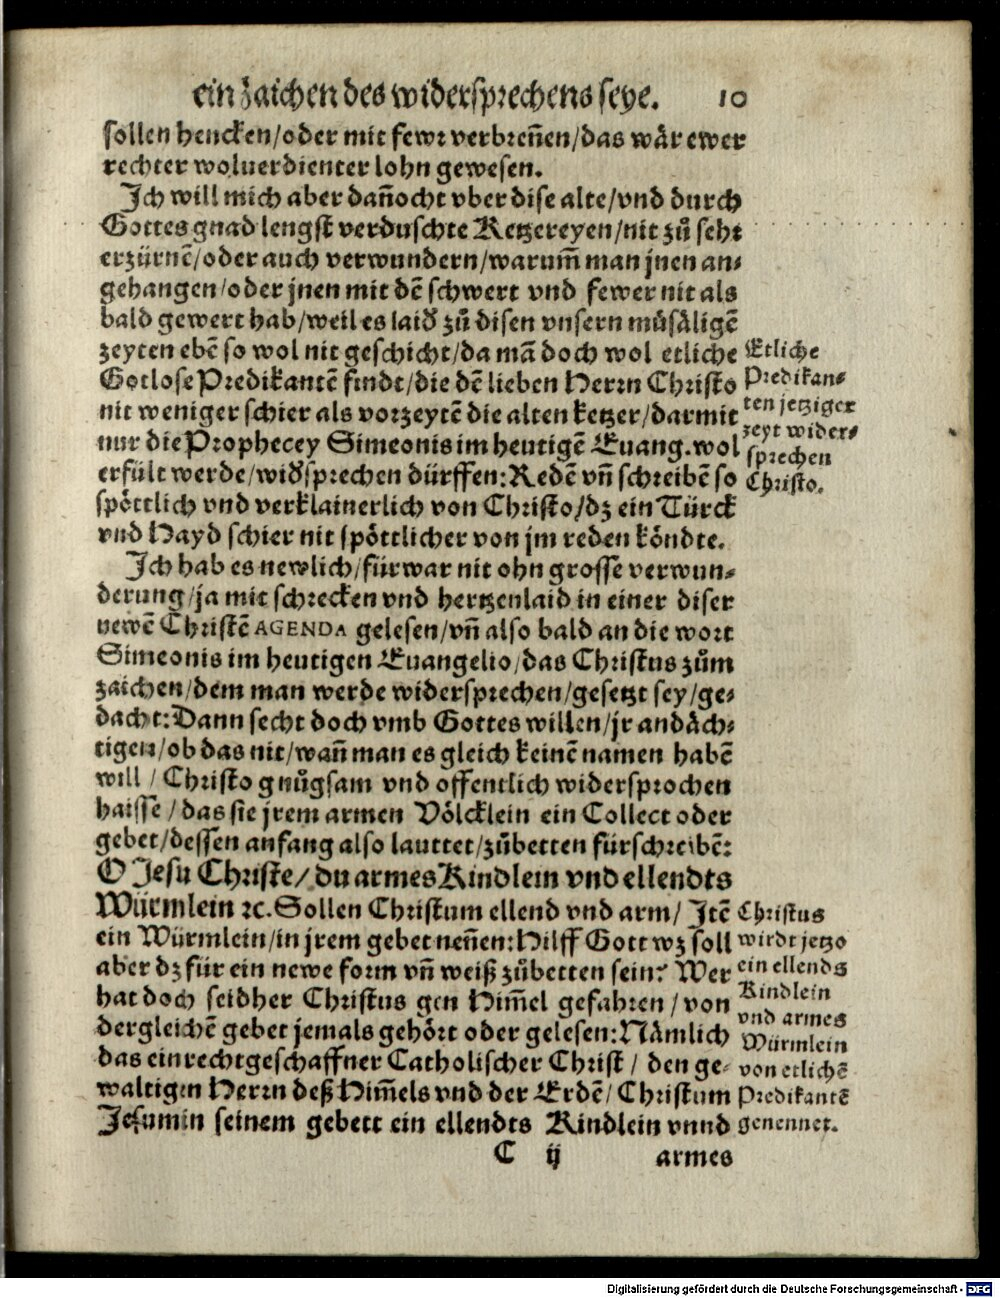 ein Zaichen des widersprechens seye. 10
sollen hencken/oder mit fewr verbreñen/das wår ewer
rechter woluerdienter lohn gewesen.
Ich will mich aber dañocht vber dise alte/vnd durch
Gottes gnad lengst verduschte Ketzereyen/nit zů sehr
erzürnẽ/oder auch verwundern/warum̃ man jnen an⸗
gehangen/oder jnen mit dẽ schwert vnd fewer nit als
bald gewert hab/weil es laid̕ zů disen vnsern můsåligẽ
zeyten ebẽ so wol nit geschicht/da mã doch wol etliche
Gotlose Predikantẽ findt/die dẽ lieben Herrn Christo
nit weniger schier als vorzeytẽ die alten ketzer/darmit
nur die Prophecey Simeonis im heutigẽ Euang. wol
erfült werde/wid̕sprechen dürffen: Redẽ vñ schreibẽ so
spöttlich vnd verklainerlich von Christo/dz ein Türck
vnd Hayd schier nit spöttlicher von jm reden köndte.
Etliche
Predikan⸗
ten jetziger
zeyt wider⸗
sprechen
Christo.
Ich hab es newlich/fürwar nit ohn grosse verwun⸗
derung/ja mit schrecken vnd hertzenlaid in einer diser
newẽ Christẽ AGENDA gelesen/vñ also bald an die wort
Simeonis im heutigen Euangelio/das Christus zům
zaichen/dem man werde widersprechen/gesetzt sey/ge⸗
dacht: Dann secht doch vmb Gottes willen/jr andåch⸗
tigen/ob das nit/wañ man es gleich keinẽ namen habẽ
will/Christo gnůgsam vnd offentlich widersprochen
haisse/das sie jrem armen Völcklein ein Collect oder
gebet/dessen anfang also lauttet/zůbetten fürschreibẽ:
O Jesu Christe/du armes Kindlein vnd ellendts
Würmlein ꝛc. Sollen Christum ellend vnd arm/Itẽ
ein Würmlein/in jrem gebet neñen: Hilff Gott wz soll
aber dz für ein newe form vñ weiß zůbetten sein? Wer
hat doch seidher Christus gen Him̃el gefahren/von
dergleichẽ gebet jemals gehört oder gelesen: Nåmlich
das ein rechtgeschaffner Catholischer Christ/den ge⸗
waltigen Herrn deß Him̃els vnd der Erdẽ/Christum
Jesum in seinem gebett ein ellendts Kindlein vnnd
Christus
wirdt jetzo
ein ellends
Kindlein
vnd armes
Würmlein
von etlichẽ
Predikantẽ
genennet.
C ij armes
Digitalisierung gefördert durch die Deutsche Forschungsgemeinschaft - DFG